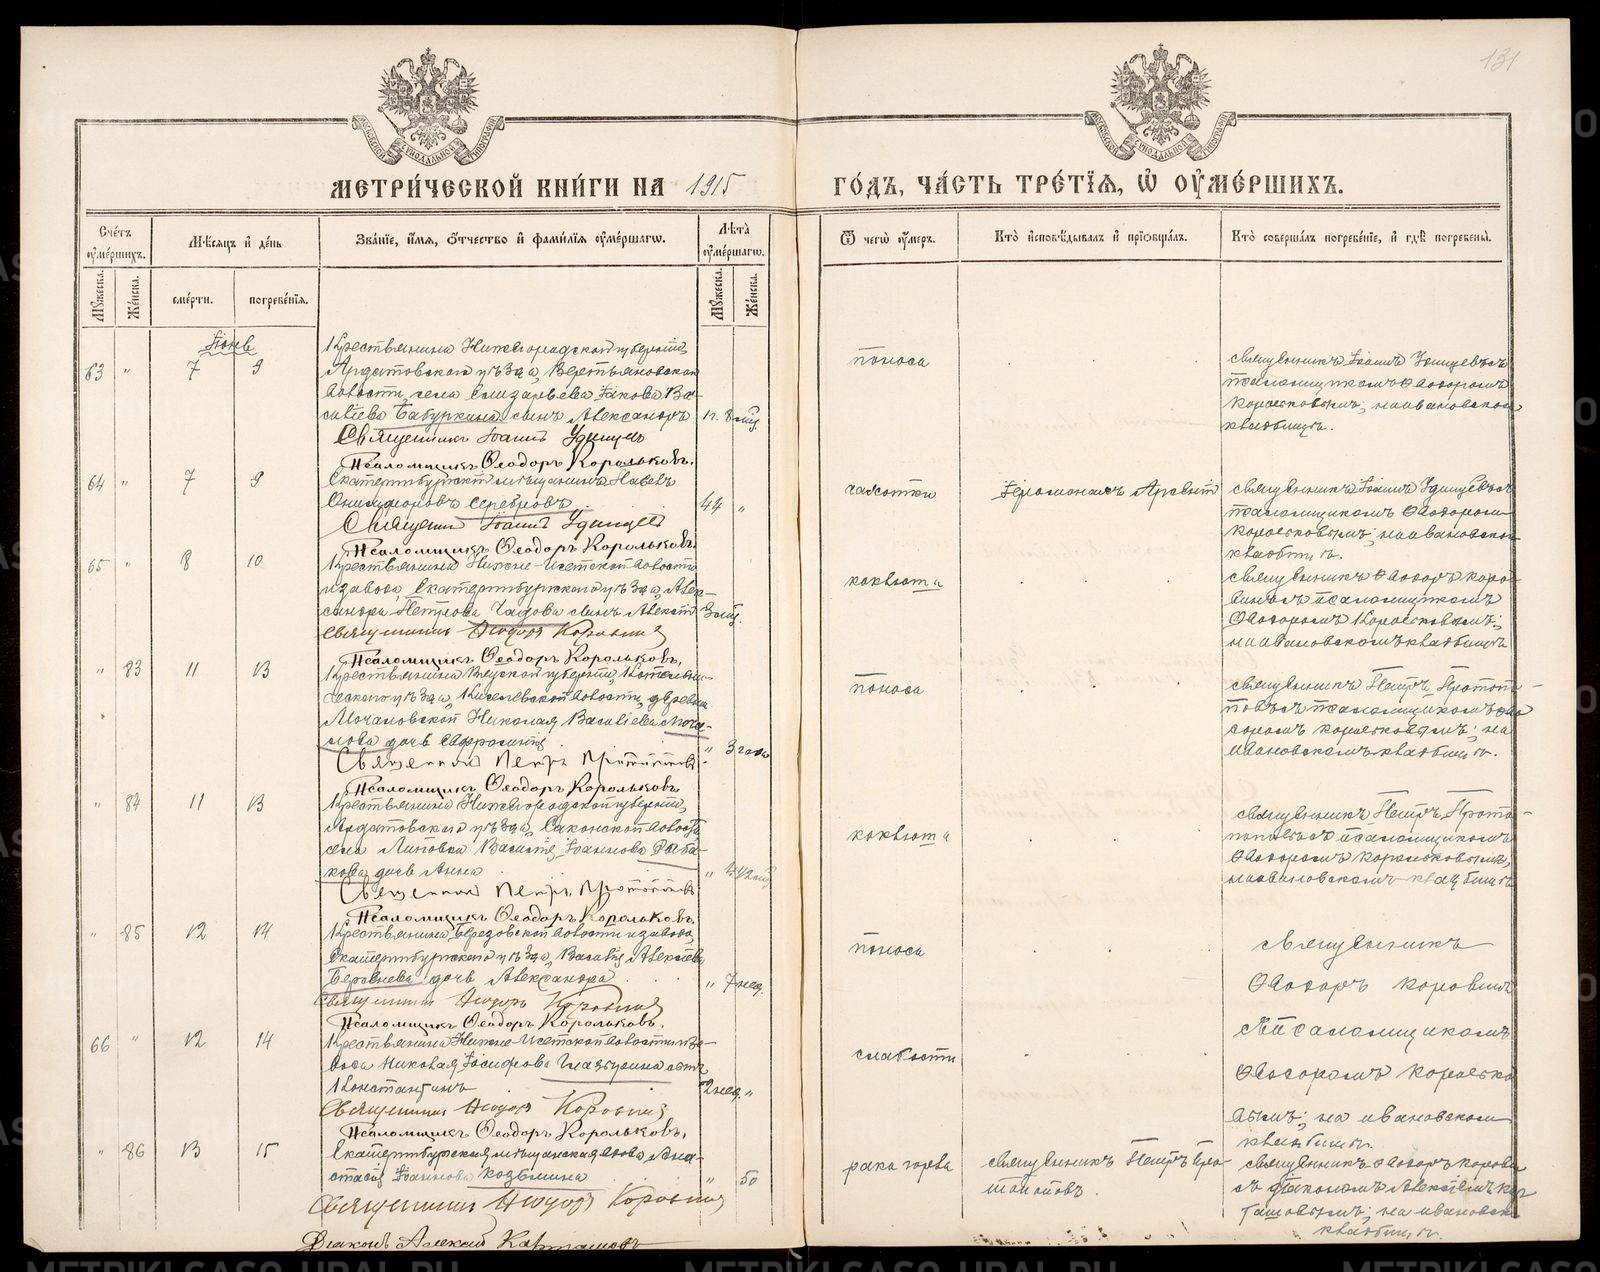 131
МЕТРИЧЕСКОЙ КНИГИ НА 1915
ГОДЪ, ЧАСТЬ ТРЕТІЯ, Ѿ ОУМЕРШИХЪ.
Счетъ оумершихъ.
Мѣсяцъ и день
Званіе, имя, отчество и фамилія оумершагѡ.
Лѣта оумершагѡ.
Ѿ чегѡ оумеръ.
Кто исповѣдывалъ и пріобщалъ.
Кто совершалъ погребеніе, и гдѣ погребены.
Мужеска.
Женска.
смерти.
погребенія.
Мужеска.
Женска.
Іюнь
Крестьянина Нижегородской губерніи,
63 " 7 9 Ардатовскаго уѣзда,
волости, села Елизарьева Іакова Ва-
сильева Бабуркина сынъ Александръ
8 мѣс.
поноса
священникъ Іоаннъ Удинцевъ съ
псаломщикомъ Ѳеодоромъ
Корольковымъ; на Ивановскомъ
кладбищѣ.
Священникъ Іоаннъ Удинцевъ
Псаломщикъ Ѳеодоръ Корольковъ.
64 " 7 9 Екатеринбургскій мѣщанинъ Павелъ
Онисифоровъ Серебровъ
44 "
чахотки
Іеромонахъ
священникъ Іоаннъ Удинцевъ съ
псаломщикомъ Ѳеодоромъ
Корольковымъ; на Ивановскомъ
кладбищѣ.
Священникъ Іоаннъ Удинцевъ
Псаломщикъ Ѳеодоръ Корольковъ.
65 " 8 10 Крестьянина Нижне-Исетской волости
и завода, Екатеринбургскаго уѣзда, Алек-
сандра Петрова сынъ Алексій
3 мѣс.
коклюша
священникъ Ѳеодоръ Коро-
винъ съ псаломщикомъ
Ѳеодоромъ Корольковымъ;
на Ивановскомъ кладбищѣ
Священникъ Ѳеодоръ Коровинъ
Псаломщикъ Ѳеодоръ Корольковъ.
" 83 11 13 Крестьянина Вятской губерніи, Котельни-
ческаго уѣзда, волости, деревни
Мочаловской Николая Васильева Моча-
лова дочь Евфросинія
" 3 года
поноса
священникъ Петръ Протопо-
повъ съ псаломщикомъ Ѳео-
доромъ Корольковымъ; на
Ивановскомъ кладбищѣ.
Священникъ Петръ Протопоповъ
Псаломщикъ Ѳеодоръ Корольковъ
" 84 11 13 Крестьянина Нижегородской губерніи,
Ардатовскаго уѣзда, Саконской волости
села Липовки Василія Іоаннова Раба-
кова дочь Анна
коклюша
священникъ Петръ Прото-
поповъ съ псаломщикомъ
Ѳеодоромъ Корольковымъ,
на Ивановскомъ кладбищѣ
Священникъ Петръ Протопоповъ
Псаломщикъ Ѳеодоръ Корольковъ.
" 85 12 14 Крестьянина Березовской волости и завода,
Екатеринбургскаго уѣзда, Василія Алексѣева
дочь Александра
" 7 нед.
поноса
священникъ
Ѳеодоръ Коровинъ
съ псаломщикомъ
Ѳеодоромъ Королько-
вымъ; на Ивановскомъ
кладбищѣ.
Священникъ Ѳеодоръ Коровинъ
Псаломщикъ Ѳеодоръ Корольковъ.
66 " 12 14 Крестьянина Нижне-Исетской волости и за-
вода Николая Іосифова сынъ
Константинъ
2 нед. "
слабости
Священникъ Ѳеодоръ Коровинъ
Псаломщикъ Ѳеодоръ Корольковъ.
" 86 13 15 Екатеринбургская мѣщанская вдова Ана-
стасія Іоаннова Козьмина
" 50
рака
священникъ Петръ Про-
топоповъ.
священникъ Ѳеодоръ Коровинъ
съ діакономъ Алексіемъ Кар-
ташовымъ; на Ивановскомъ
кладбищѣ.
Священникъ Ѳеодоръ Коровинъ
Діаконъ Алексій Карташовъ